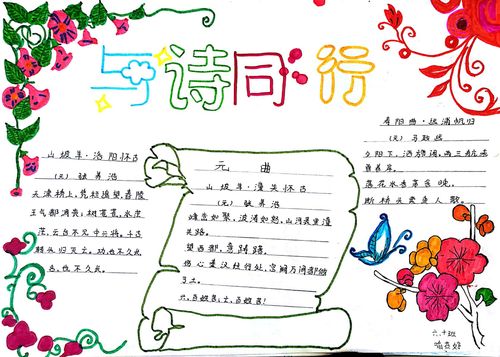 与诗同行
山坡羊·洛阳怀古
(元) 张养浩
天津桥上，凭栏遥望，舂陵
王气都凋丧；树苍苍，水茫
茫，云台不见中兴将。千古
转头归灭亡。功，也不久长
；名，也不久长。
元曲
山坡羊·潼关怀古
(元) 张养浩
峰峦如聚，波涛如怒，山河表里潼
关路。
望西都，意踌躇。
伤心秦汉经行处，宫阙万间都做
了土。
兴，百姓苦；亡，百姓苦！
寿阳曲·远浦帆归
(元) 马致远
夕阳下，酒旆闲，两三航未
曾着岸。
落花水香茅舍晚，
断桥头卖鱼人散。
六.十班